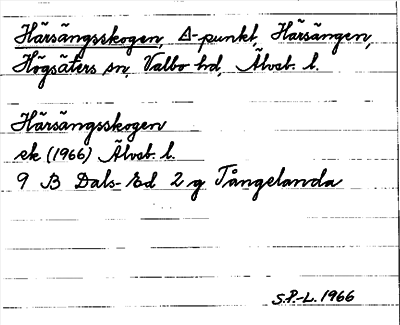 Härsängsskogen, Δ-punkt, Härsängen,
Högsäters sn, Valbo hd, Älvsb. l.
Härsängsskogen
ek (1966) Älvsb. l.
9 B Dals-Ed 2 g Tångelanda
S.P.-L. 1966